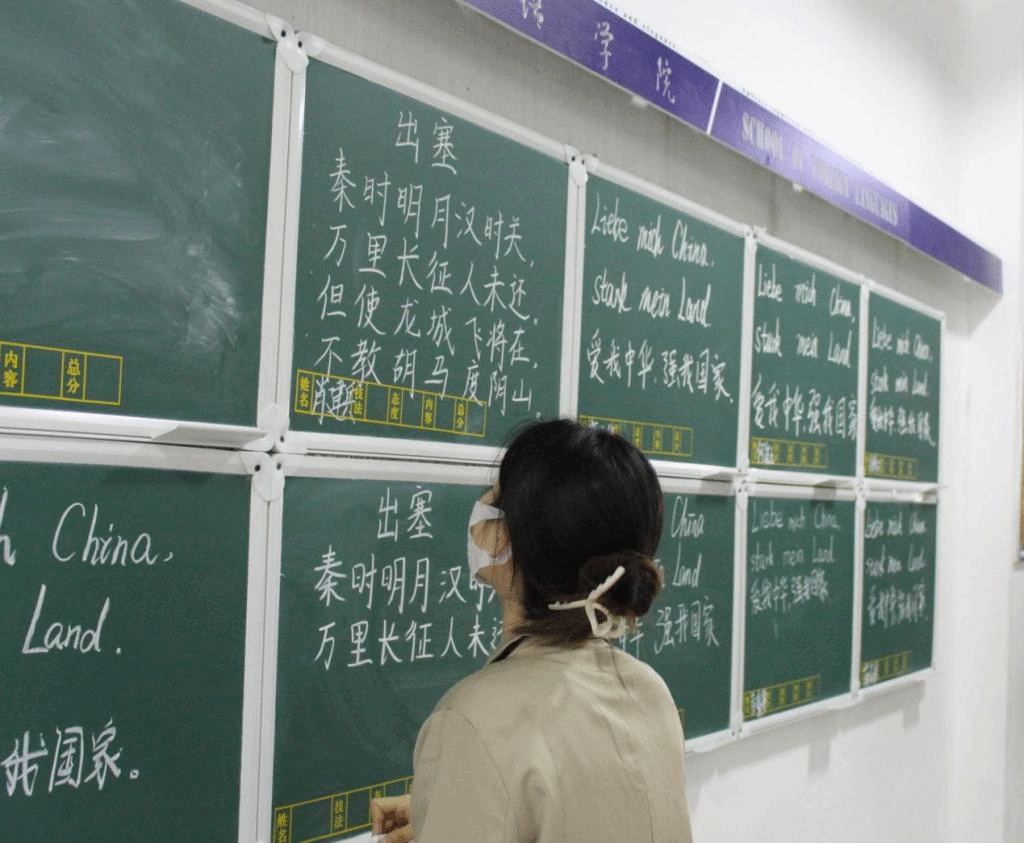 学院
SCHOOL OF FOREIGN LANGUAGES
内容 总分
出塞
秦时明月汉时关,
万里长征人未还。
但使龙城飞将在,
不教胡马度阴山。
姓名 技法 态度 内容 总分
Liebe mich China.
stark mein Land
爱我中华.强我国家.
Liebe mich China,
stark mein Land
爱我中华.强我国家
Liebe mich China.
stark mein Land
爱我中华.强我国家.
China,
Land.
我国家。
出塞
秦时明月汉
万里长征人未
姓名 技法
China
Land
强我国家
Liebe mich China.
stark mein Land.
爱我中华.强我国家.
Liebe mich China
stark mein Land.
爱我中华.强我国家.